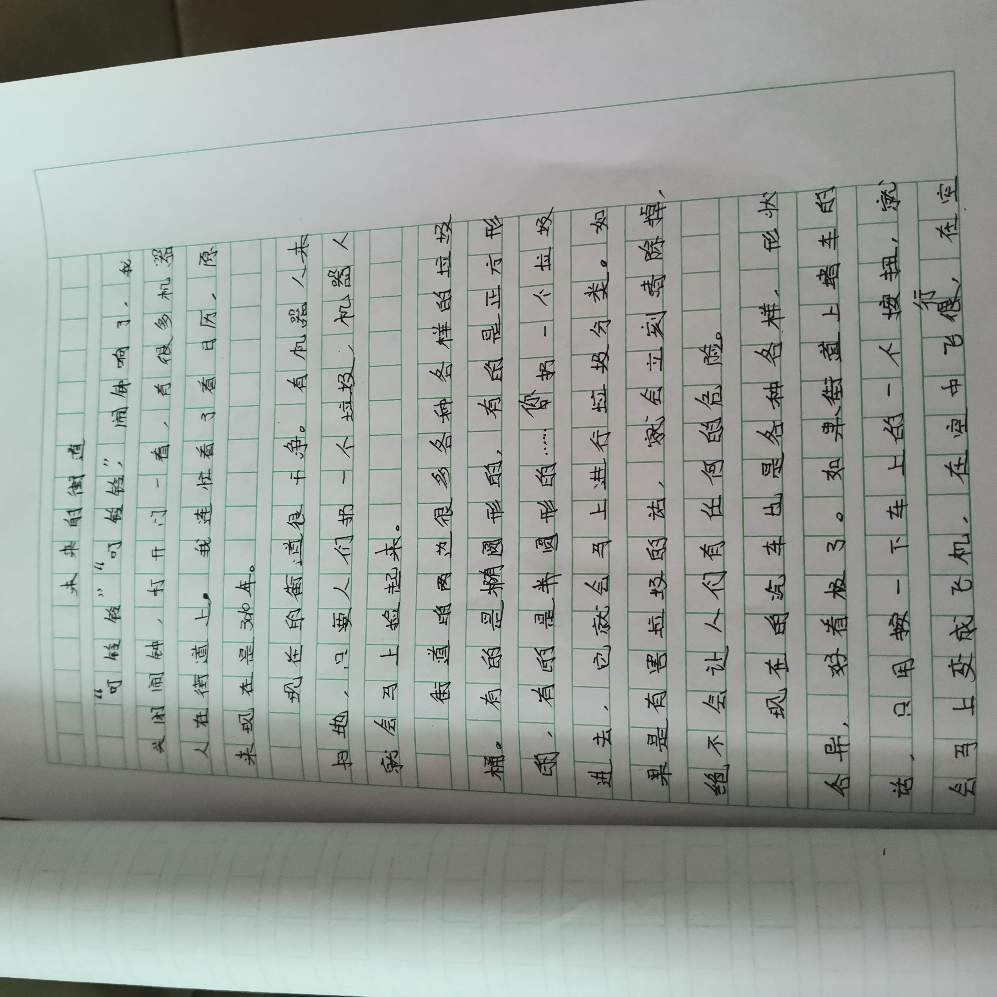 未来的街道
“叮铃铃”“叮铃铃”，闹钟响了，我
关闭闹钟，打开门一看，有很多机器
人在街道上。我连忙看了看日历，原
来现在是3010年。
现在的街道很干净。有机器人来
扫地，只要人们扔一个垃圾，机器人
就会马上捡起来。
街道的两边很多各种各样的垃圾
桶。有的是椭圆形的，有的是正方形
的，有的是半圆形的……你扔一个垃圾
进去，它就会马上进行垃圾分类。如
果是有害垃圾的话，就会立刻清除掉，
绝不会让人们有任何的危险。
现在的汽车也是各种各样，形状
各异，好看极了。如果街道上堵车的
话，只用按一下车上的一个按扭，就
会马上变成飞机，在空中飞行，在空